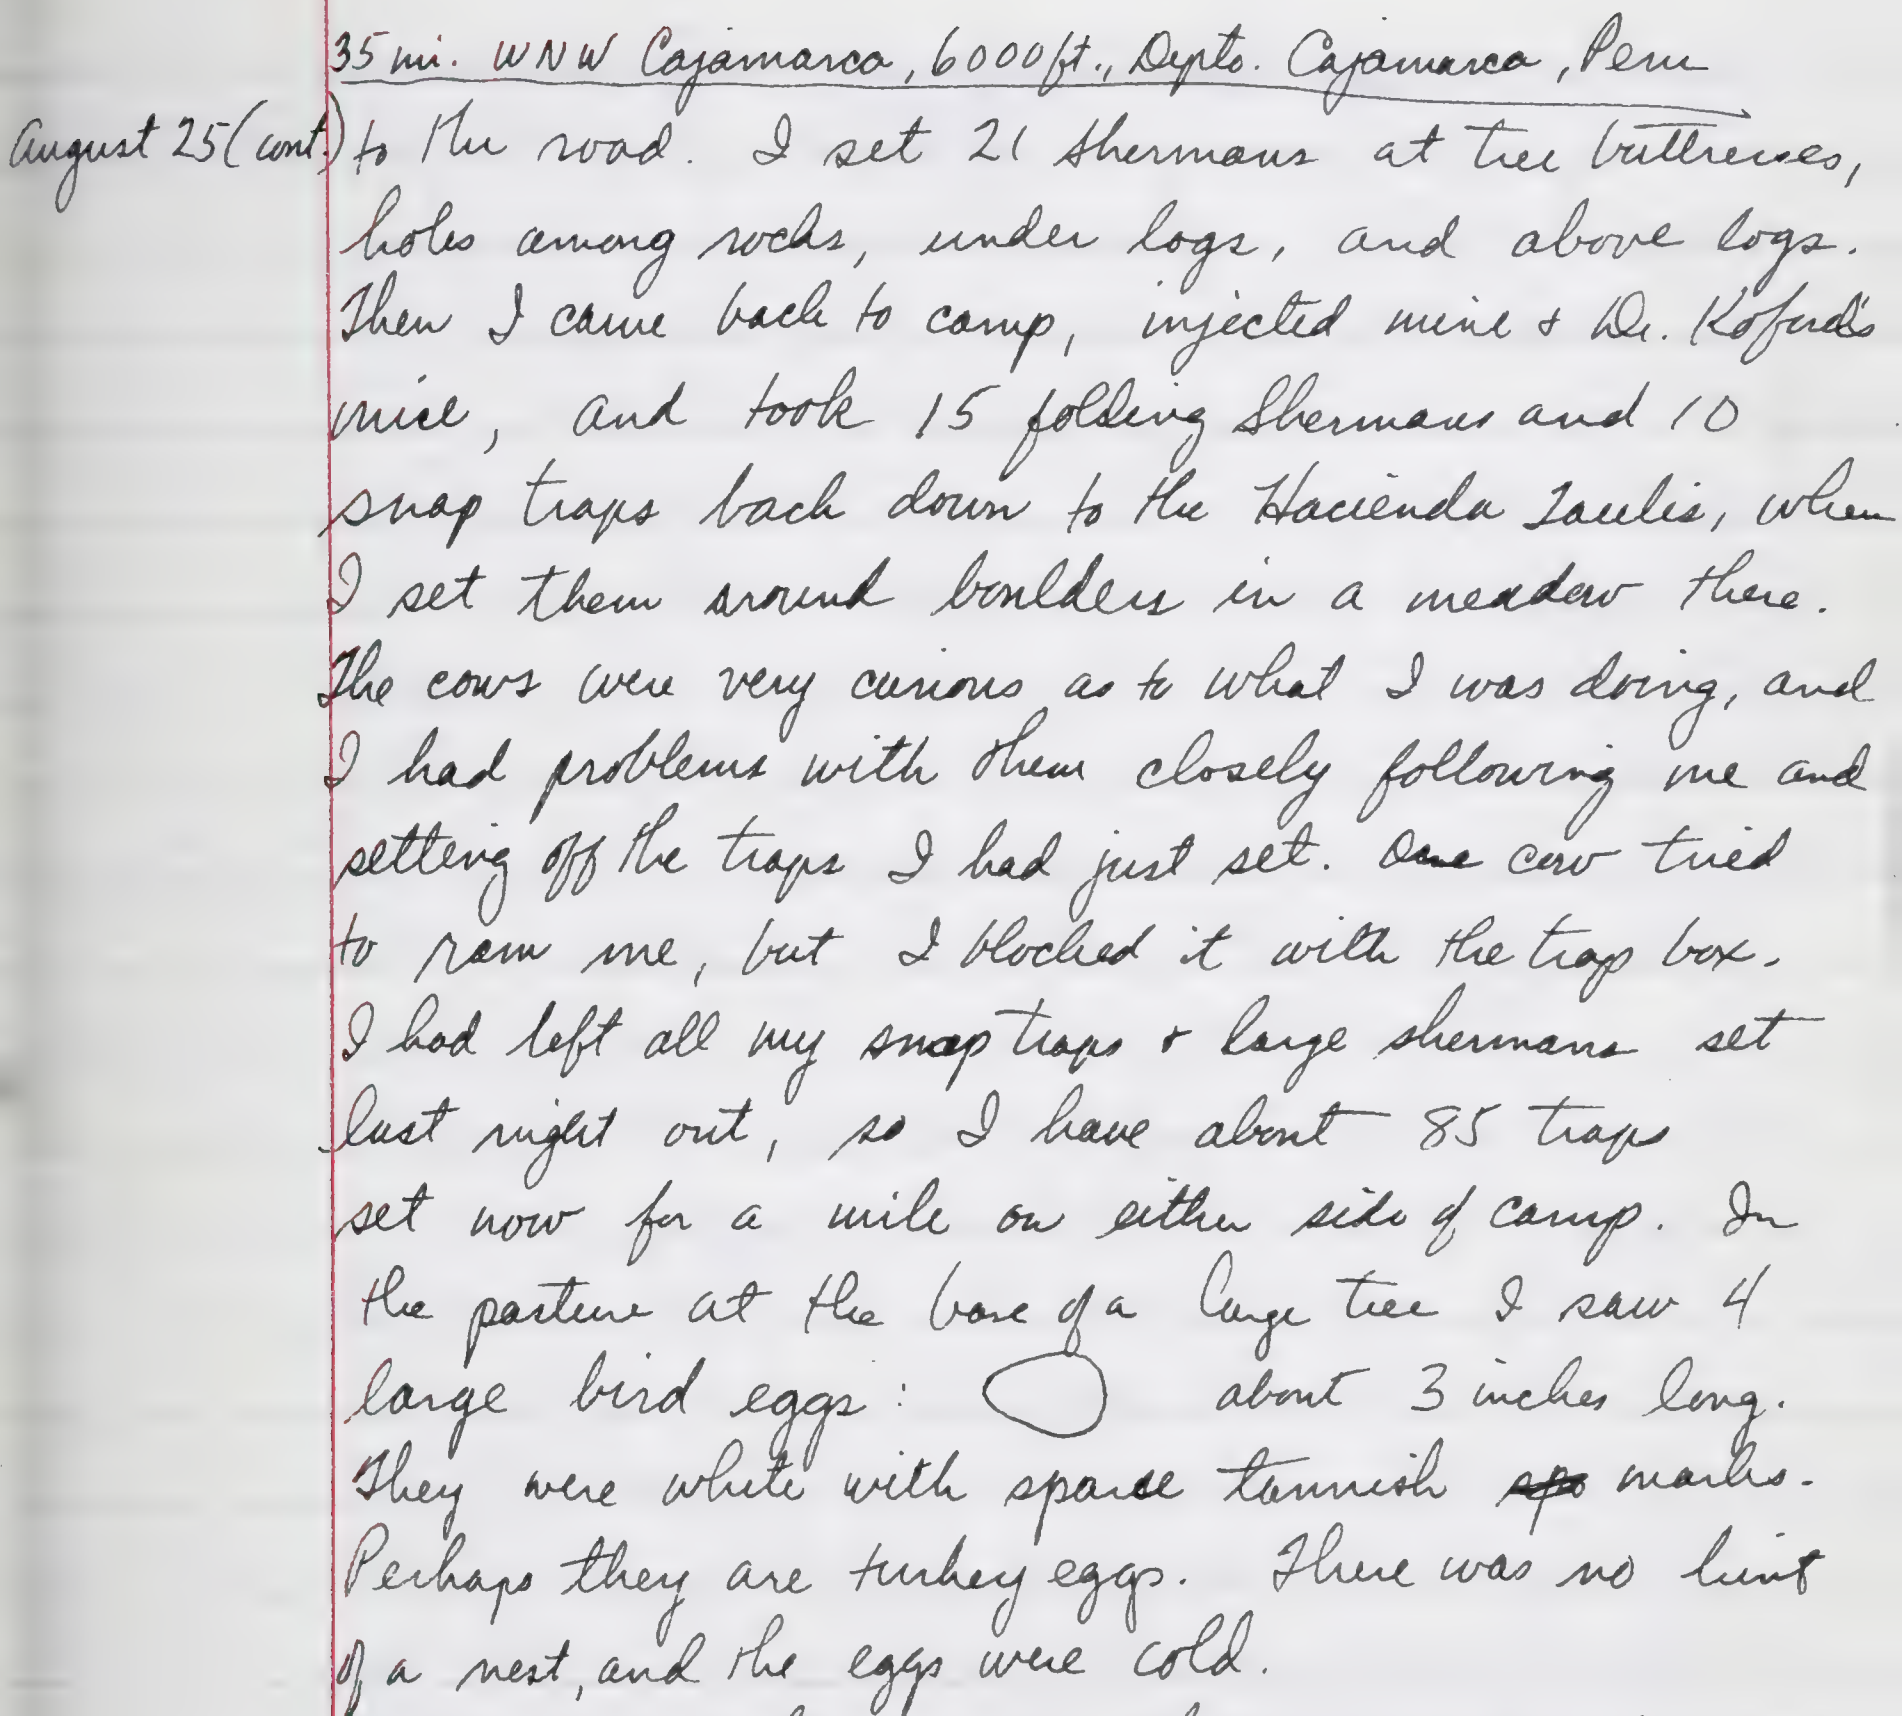 35 mi. WNW Cajamarca, 6000ft., Depto. Cajamarca, Peru
August 25 (cont.) to the road. I set 21 shermans at tree buttresses,
holes among rocks, under logs, and above logs.
Then I came back to camp, injected mine & Dr. Koford's
mice, and took 15 folding Shermans and 10
snap traps back down to the Hacienda Taulis, where
I set them around boulders in a meadow there.
The cows were very curious as to what I was doing, and
I had problems with them closely following me and
setting off the traps I had just set. One cow tried
to ram me, but I blocked it with the trap box.
I had left all my snap traps & large shermans set
last night out, so I have about 85 traps
set now for a mile on either side of camp. In
the pasture at the base of a large tree I saw 4
large bird eggs: about 3 inches long.
They were white with sparse tannish marks.
Perhaps they are turkey eggs. There was no hint
of a nest, and the eggs were cold.